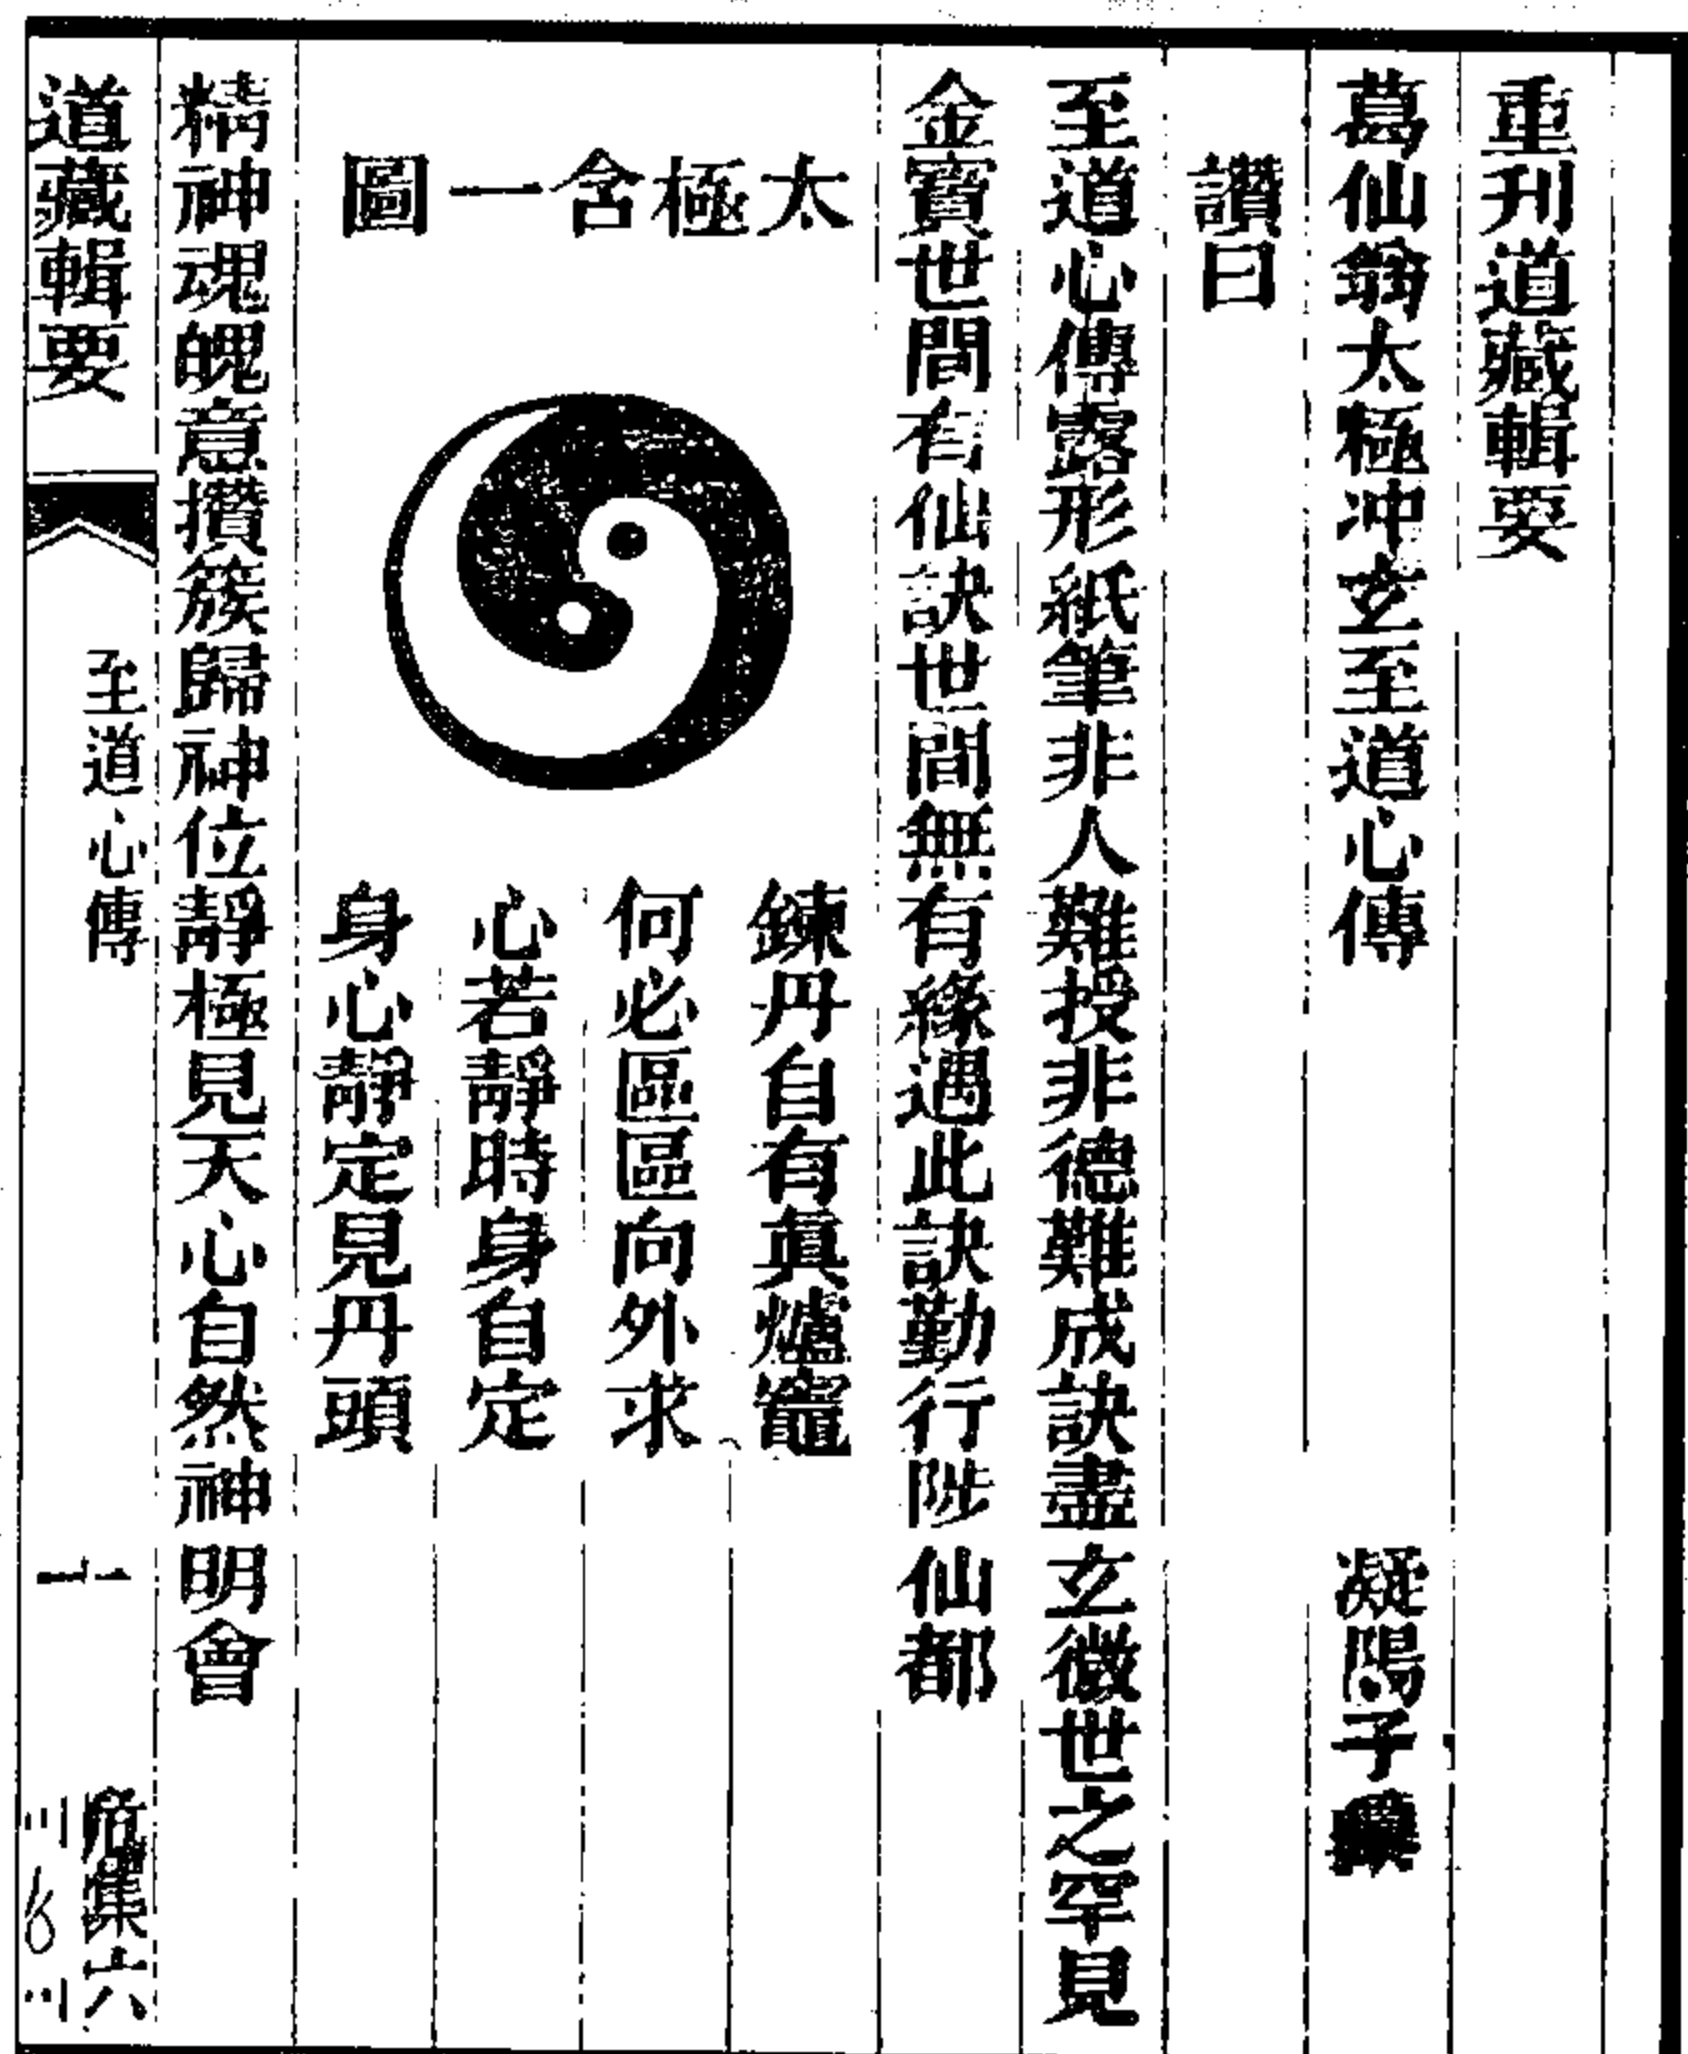 重刊道藏輯要
葛仙翁太極冲玄至道心傳 凝陽子
讚曰
至道心傳露形紙筆非人難授非德難成訣盡玄微世之罕見
金寶世間有仙訣世間無有緣遇此訣勤行陟仙都
太極含一圖
鍊丹自有眞爐竈
何必區區向外求
心若靜時身自定
身心靜定見丹頭
精神魂魄意攢簇歸神位靜極見天心自然神明會
道藏輯要 至道心傳 一 危集六